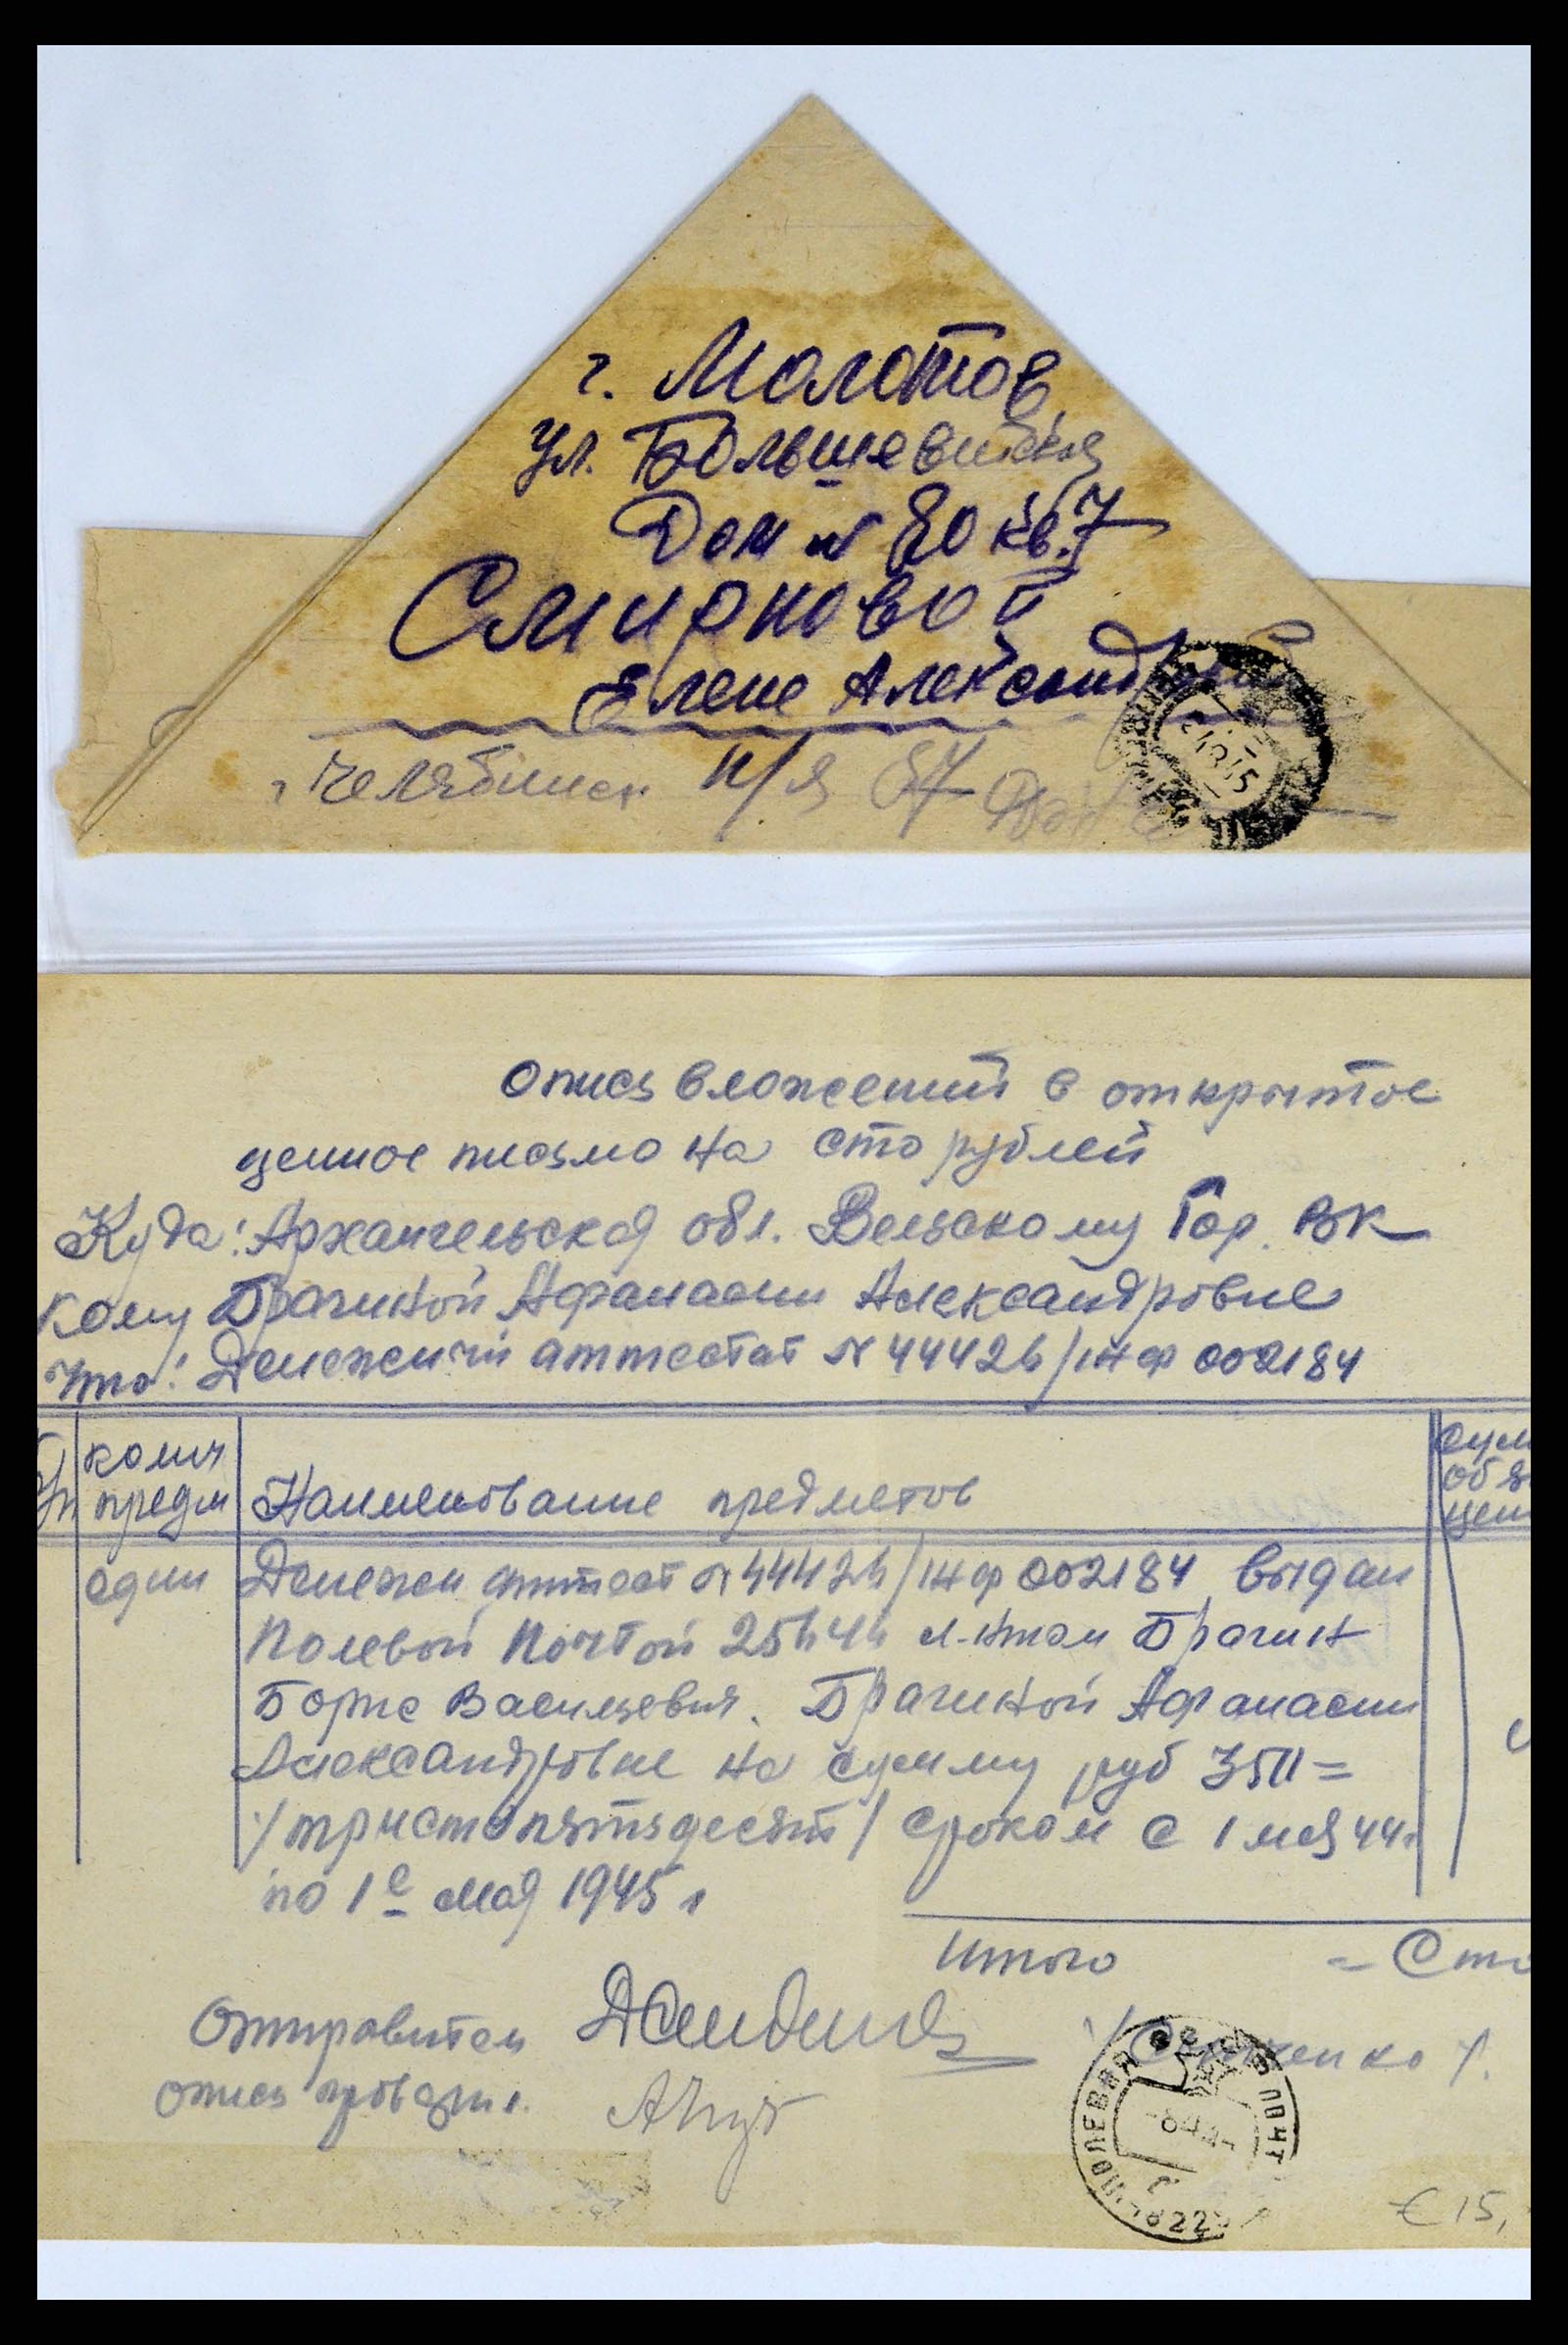 г. Молотов
ул. Большевистская
Дом № 80 кв. 7
Смирновой
Елене Александровне
г. Челябинск п/я 87
Опись вложений в открытое
ценное письмо на сто рублей
Куда: Архангельская обл. Вельскому Гор. ВК
Кому Брагиной Афанасии Александровне
Что: Денежный аттестат №
колич
предм
Наименование предметов
сум
объя
цен
один
Денежн аттестат № выдан
Полевой Почтой л-нтом Брагин
Борис Васильевич. Брагиной Афанасии
Александровне на сумму руб
/триста пятьдесят/ сроком с 1 мая 44г
по 1е мая 1945 г
Итого = Сто
Отправитель
опись проверил.
ПОЛЕВАЯ ПОЧТ
€ 15,